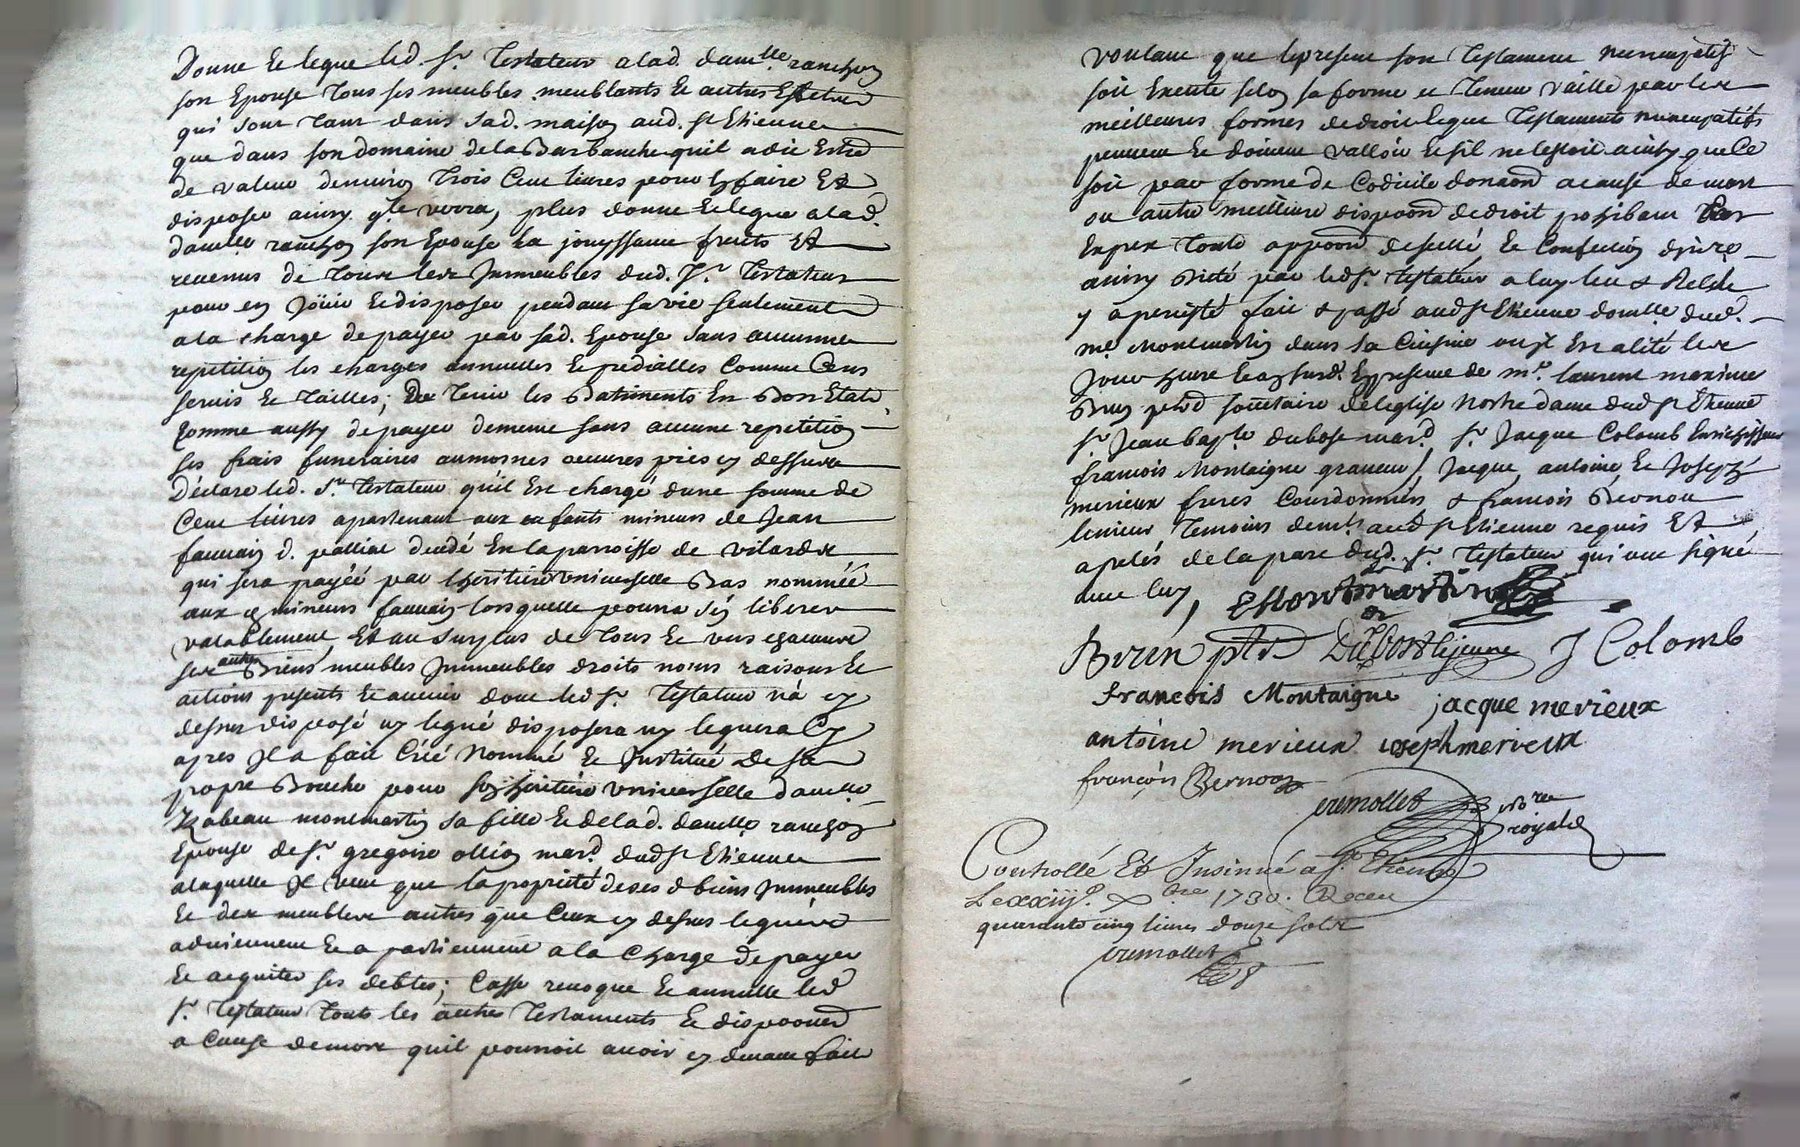 Donne et legue led. Sr. Testateur a lad. damlle ranchon
son Epouse Tous ses meubles meublants et autres Effetscd
qui sont tant dans sad. maison aud. St Etienne
que dans son domaine de la Barbanche quil a dit Estre
de valeur denviron Trois Cent livres pour En faire Et
disposer ainsy qle voora, plus donne et legue a lad.
damlle ranchon son Epouse La jouyssance fruits Et
revenus de Tous les Immeubles dud. Sr. Testateur
pour en Joüir et disposer pendant sa vie seulement
a la charge de payer par sad. Epouse sans aucunne
repetition les charges annuelles et predialles Comme Cens
servis et Tailles; De Tenir les Batiments En Bon Etat
Comme aussy de payer de meme sans aucune repetition
ses frais funeraires aumosnes oeuvres pies cy dessus
Declare led. Sr. Testateur quil Est chargé dune somme de
Cent livres apartenant aux enfants mineurs de Jean
fauvain d. palliat decedé En la parroisse de vilards
qui sera payéé par Lheritiere universelle Bas nomméé
aux mineurs fauvain lorsquelle pourra sen liberer
valablement Et au surplus de Tous et uns chacuns
ses autres Biens meubles Immeubles droits noms raisons et
actions presents et avenir dont led Sr. Testateur n'a cy
dessus disposé ny legué disposera ny leguera Cy
apres Il a fait Créé Nommé et Institué De sa
propre Bouche pour son heritiere universelle damlle
Izabeau montmartin sa fille et de lad. damlle ranchon
Epouse de Sr. gregoire ollion mard. dud St Etienne
a laquelle Il veut que la proprieté de ses d biens Immeubles
et des meubles autres que Ceux cy dessus legués
adviennent et apartiennent a la Charge de payer
et acquiter ses debtes; Casse revoque et annulle led
Sr. Testateur Touts les autres Testaments et dispoons
a Cause de mort quil pourroit avoir cy devant fait
voulant que le present son Testament nuncupatif
soit Executé selon sa forme et Teneur vaille par les
meilleures formes de droit que Testaments nuncupatifs
peuvent et doivent valloir et sil ne lestoit ainsy que Ce
soit par forme de Codicile donaond a cause de mort
ou autre meilleure dispoond de droit
appoond de scellé et Confection
ainsy dicté par led Sr. Testateur a luy leu & Relu
y a persisté fait & passé aud St Etienne domlle dud.
me Montmartin dans sa Cuisine En alité les
Jour En presence de mr. laurent maxime
Brun ptre societaire de leglise Nostre dame dud St Etienne
Sr. Jean bapte dubost mard, Sr. Jacque Colomb Enrichisseur
francois Montaigne graveur, Jacque, antoine et Joseph
merieux freres Courdonniers & francois Bernou
Temoins demts aud St Etienne requis Et
apelés de la part dud. Sr. Testateur qui ont signé
avec luy,
EMontmartin
Brun ptre Dubost lejeune J Colomb
francois Montaigne jacque merieux
antoine merieux ioseph merieux
françois Bernou
cremollet nore royal
Controllé Et Insinué a St Etienne
Le xxiije. Xbre 1730. Receu
quarante cinq livres douze sols
cremollet